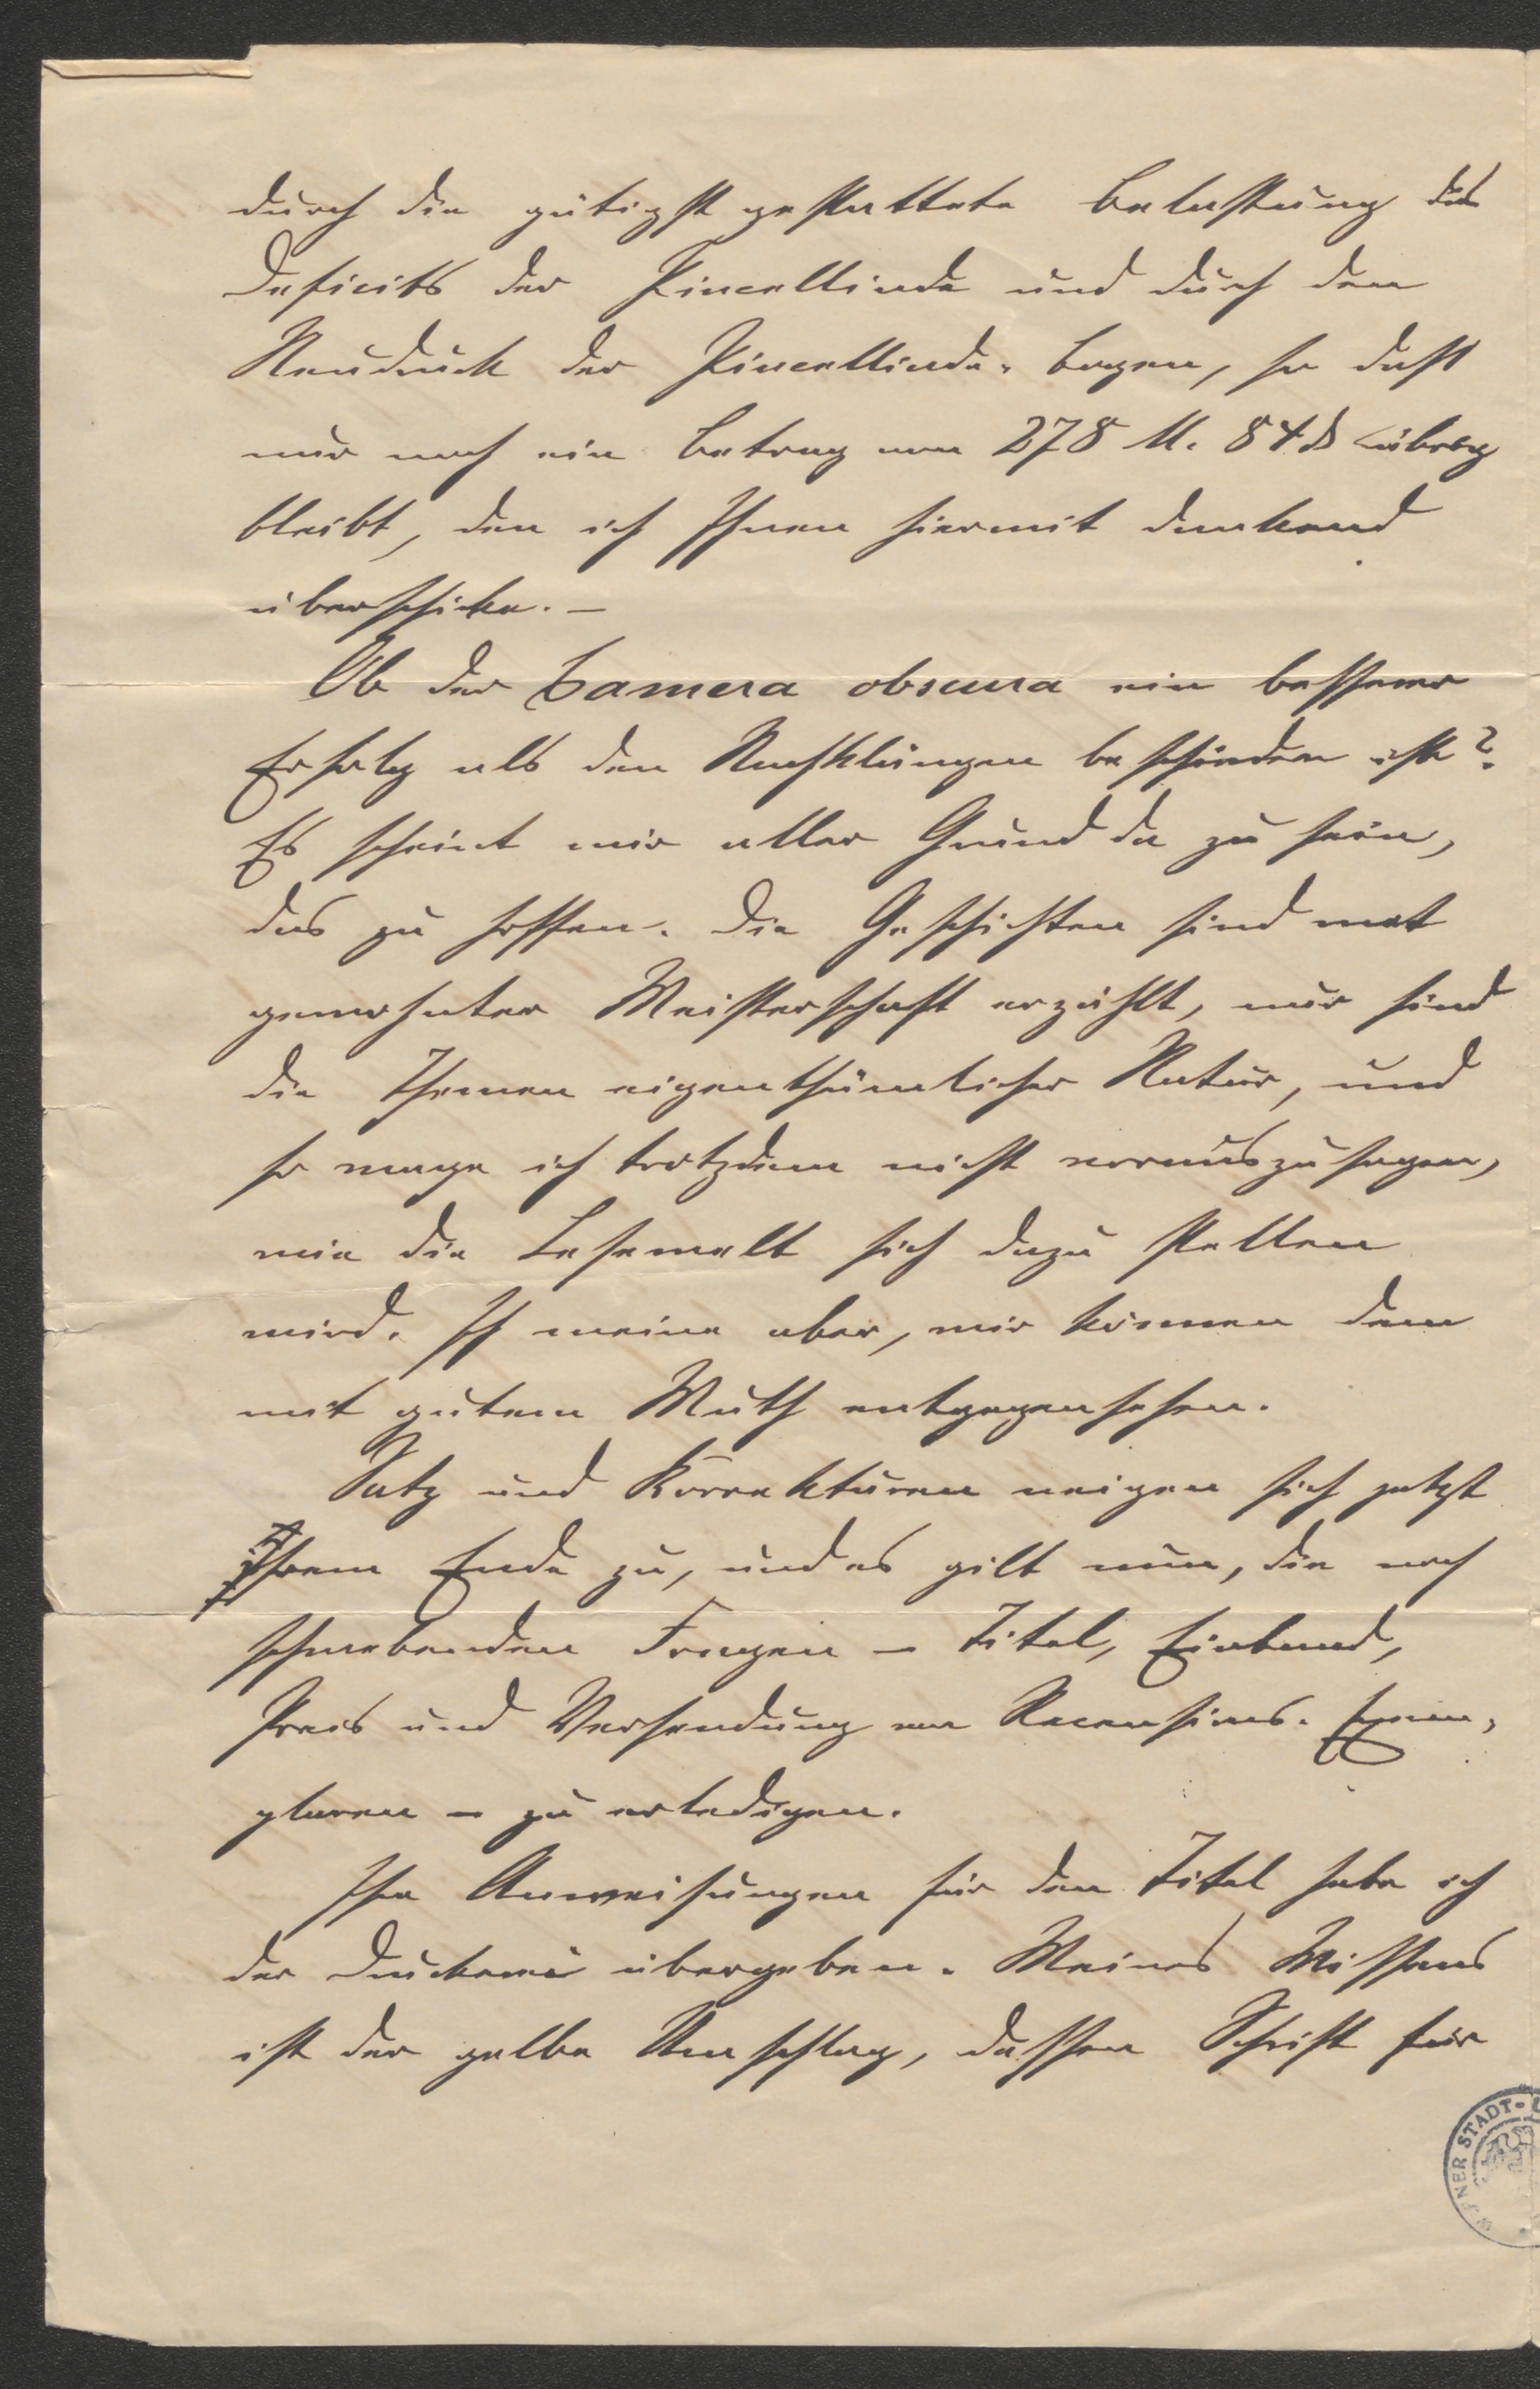 durch die gütigst gestattete Belastung des
Deficits der Kincellinde und durch den
Neudruck der Kincellinde-Bogen, so daß
nur noch ein Betrag von 278 M. 84 ₰ übrig
bleibt, den ich Ihnen hiermit dankend
überschicke. –
Ob der Camera obscura ein besserer
Erfolg als den Nachklängen beschieden ist?
Es scheint mir aller Grund da zu sein,
das zu hoffen. Die Geschichten sind mit
gewohnter Meisterschaft erzählt, nur sind
die Themen eigenthümlicher Natur, und
so wage ich trotzdem nicht vorauszusagen,
wie die Lesewelt sich dazu stellen
wird. Ich meine aber, wir können dem
mit gutem Muth entgegensehen.
Satz und Korrekturen neigen sich jetzt
ihrem Ende zu, und es gilt nun, die noch
schwebenden Fragen – Titel, Einband,
Preis und Versendung von Recensions-Exem-
plaren – zu erledigen.
Ihre Anweisungen für den Titel habe ich
der Druckerei übergeben. Meines Wissens
ist der gelbe Umschlag, dessen Schrift für
WIENER STADT-